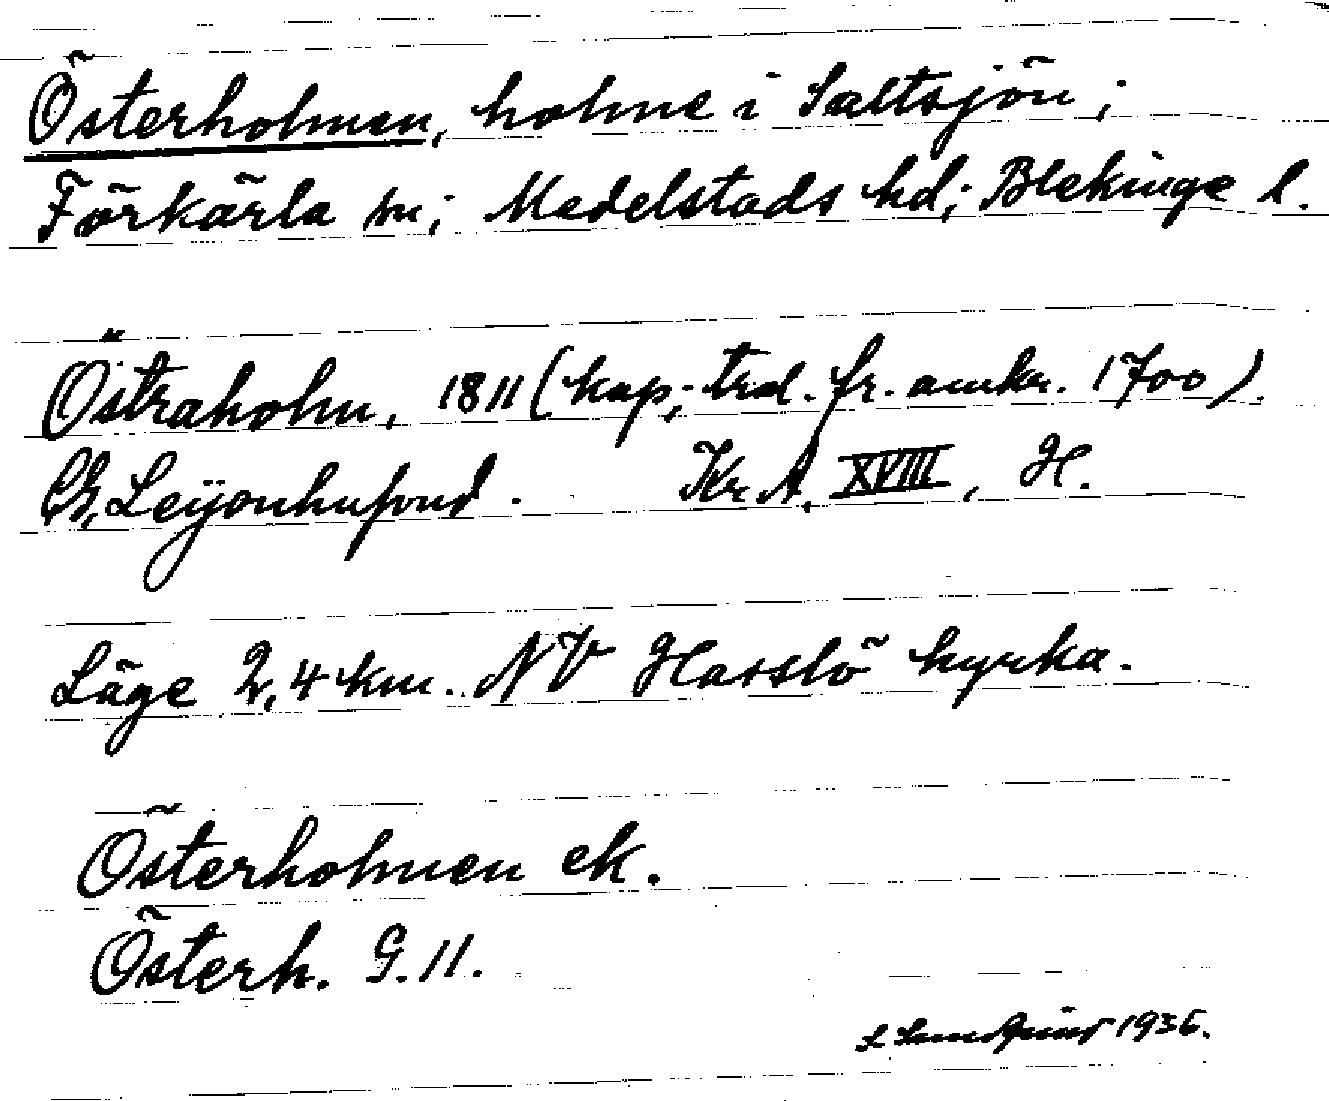 Österholmen, holme i Saltsjön;
Förkärla sn; Medelstads hd; Blekinge l.
Östraholm, 1811 (kop; trol. fr. omkr. 1700).
Leijonhufvud. Kr. A. XVIII, H.
Läge 2,4 km. NV Hasslö kyrka.
Österholmen ek.
Österh. G. 11.
1936.